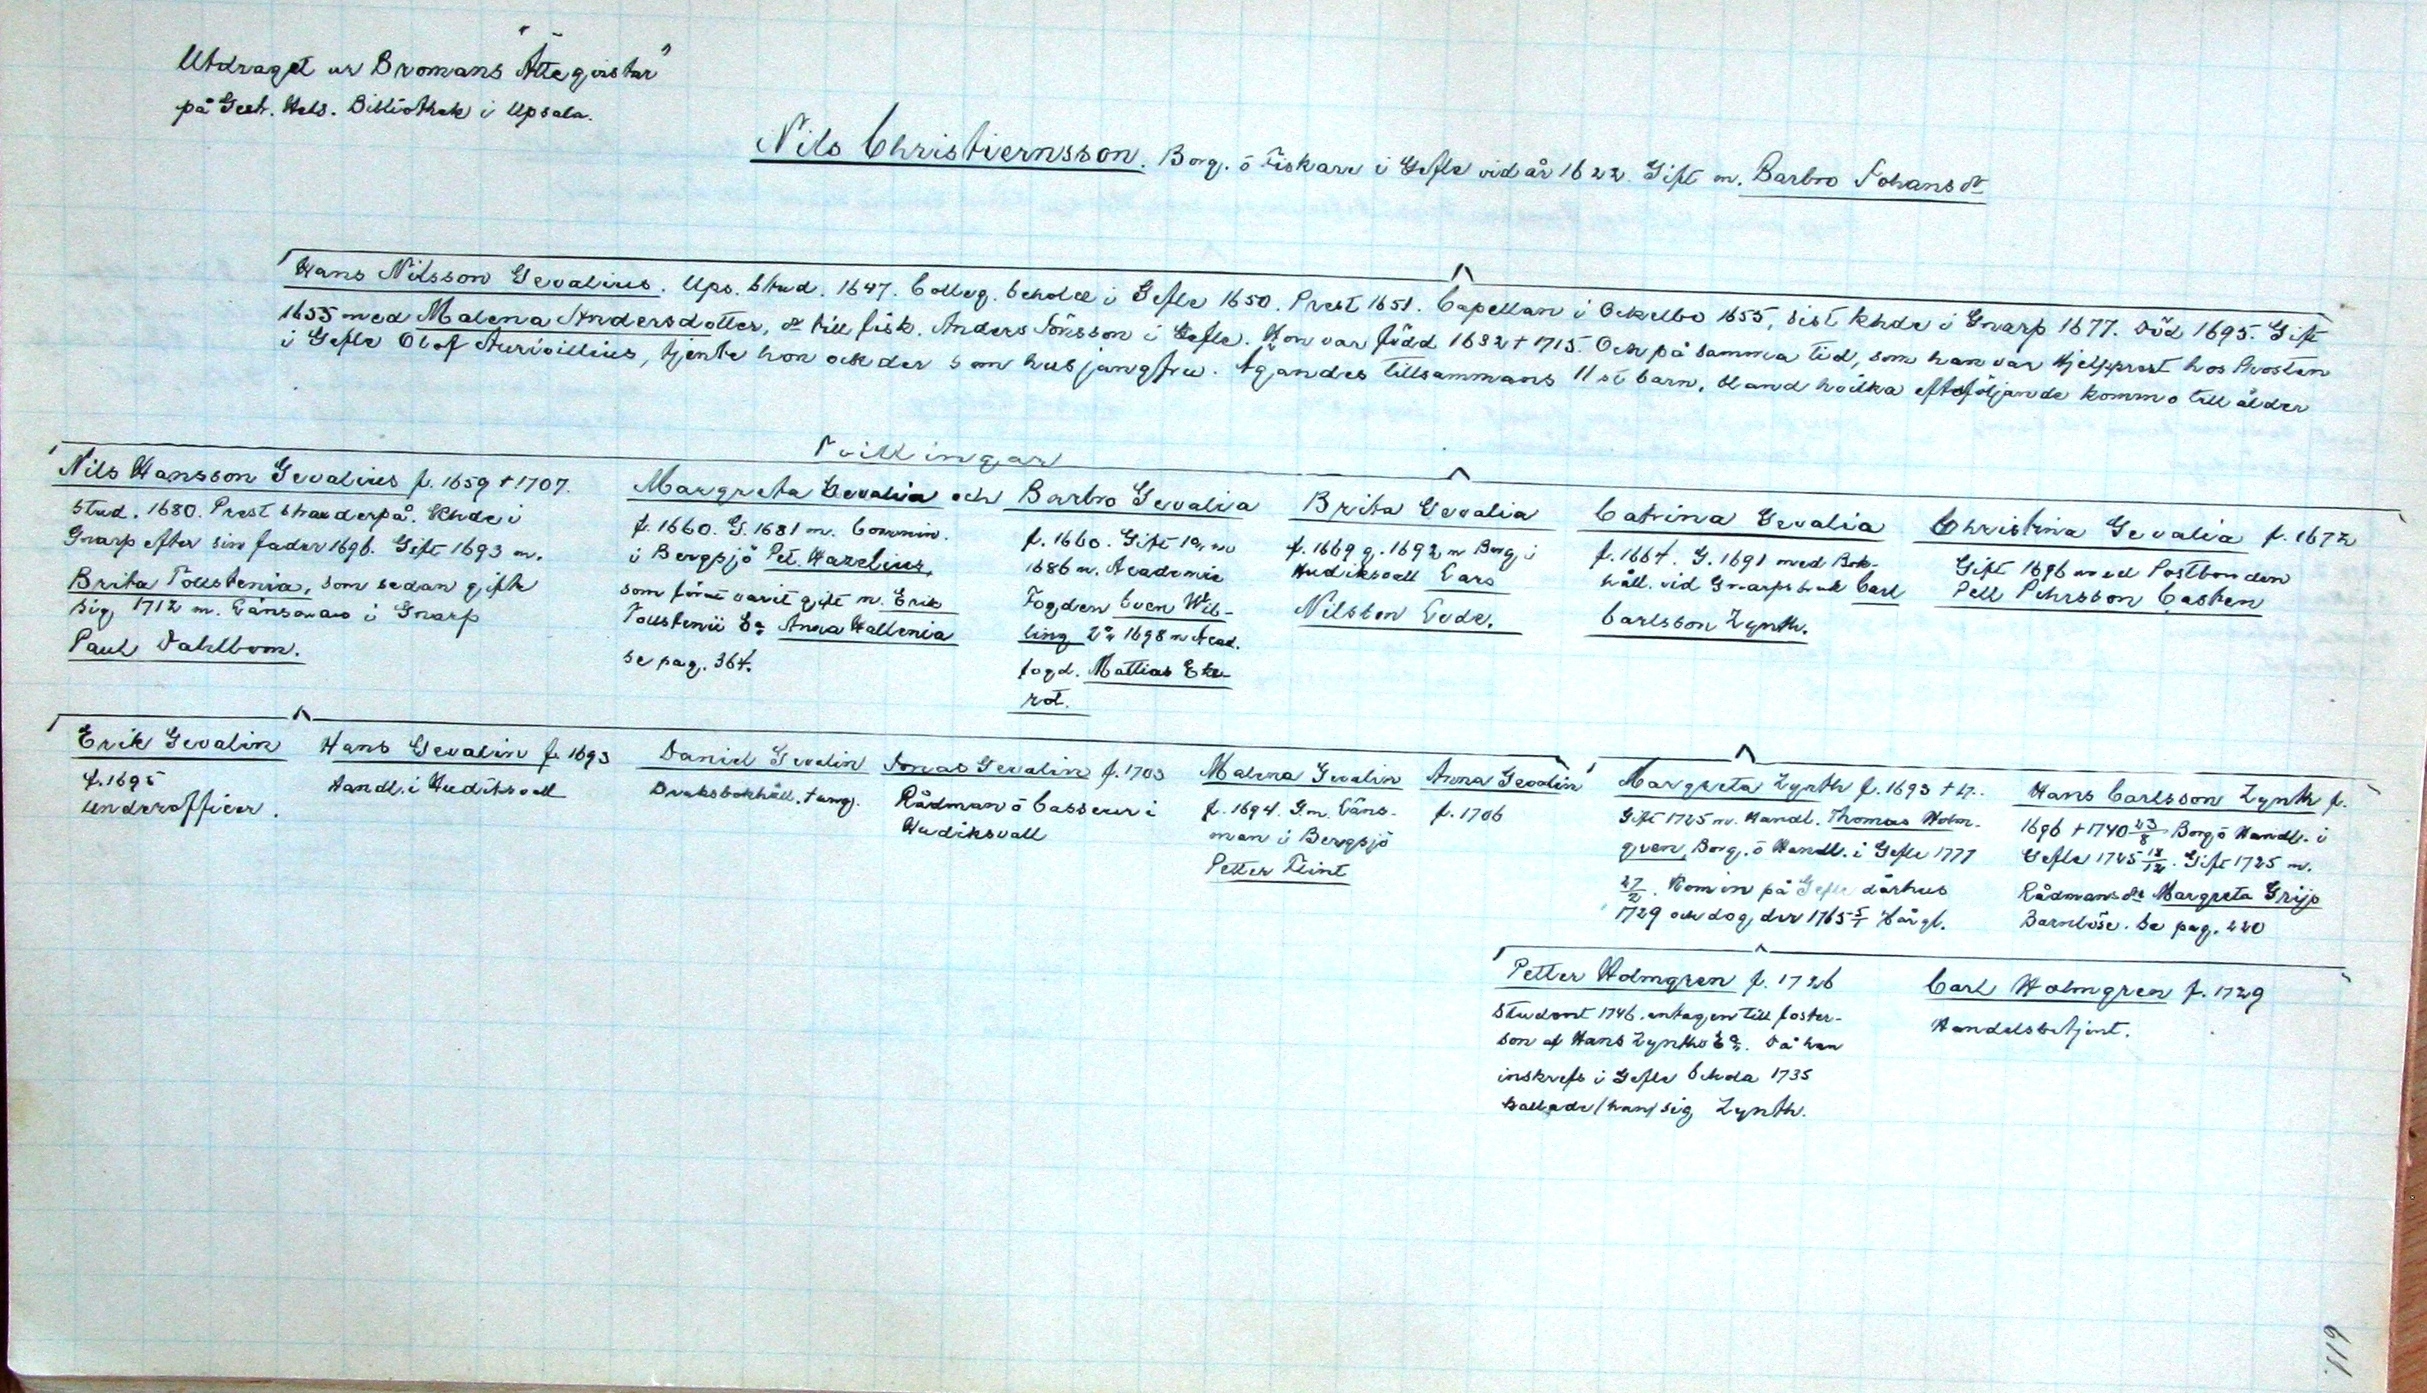 Utdraget ur Bromans "Ätteqvistar"
på Gestr. Hels. Bibliothek i Upsala.
Nils Christiernsson. Borg. ö Fiskare i Gefle vid år 1622. Gift m. Barbro Johansdr
Hans Nilsson Gevalius. Ups. Stud. 1647. Colleg. Scholæ i Gefle 1650. Prest 1651. Capellan i Ockelbo 1655, sist Khde i Gnarp 1677. Död 1695. Gift
1655 med Malena Andersdotter, dr till fisk. Anders Jönsson i Gefle. Hon var född 1632 + 1715. Och på samma tid, som han var Hjelpprest hos Prosten
i Gefle Olof Aurivillius, tjente hon ock der som husjungfru. Ägandes tillsammans 11 st barn, bland hvilka efterföljande kommo till ålder
Tvillingar
Nils Hansson Gevalius f. 1659 + 1707.
Stud. 1680. Prest straxderpå. Khde i
Gnarp efter sin fader 1696. Gift 1693 m.
Brita Tollstenia, som sedan gifte
sig 1712 m. Länsman i Gnarp
Paul Dahlbom.
Margreta Gevalia och
f. 1660. G. 1681 m. Commin.
i Bergsjö Pet. Hazelius,
som förut varit gift m. Erik
Tollstenii Ea Anna Wallenia
Se pag. 364.
Barbro Gevalia
f. 1660. Gift 1a
1686 m. Academie
Fogden Sven Wib-
ling 2a 1698 m Acad.
fogd. Mattias Eke-
rot.
Brita Gevalia
f. 1669 g. 1692 m Borg. i
Hudiksvall Lars
Nilsson Lode.
Catrina Gevalia
f. 1664. G. 1691 med Bok-
håll. vid Gnarps bruk Carl
Carlsson Zynth.
Christina Gevalia f. 1672
Gift 1696 med Postbonden
Pell Pehrsson Casten
Erik Gevalin
f. 1695
Underofficer.
Hans Gevalin f. 1693
Handl. i Hudiksvall
Daniel Gevalin
Bruksbokhåll. + ung.
Jonas Gevalin f. 1703
Rådman ö Casseur i
Hudiksvall
Malena Gevalin
f. 1694. G. m. Läns-
man i Bergsjö
Petter Flint
Anna Gevalin
f. 1706
Margreta Zynth f. 1693 +
Gift 1725 m. Handl. Thomas Holm-
gren, Borg. ö Handl. i Gefle 1727
27/2. Kom in på Gefle dårhus
1729 och dog der 1765 5/1
Hans Carlsson Zynth f.
1696 + 1740 23/8 Borg ö Handl. i
Gefle 1725 18/12. Gift 1725 m.
Rådmansdr Margreta Grijp
Barnlöse. Se pag. 220
Petter Holmgren f. 1726
Student 1746. antagen till foster-
son af Hans Zynths Ea. Då han
inskrefs i Gefle Schola 1735
kallade /han/ sig Zynth.
Carl Holmgren f. 1729
Handelsbetjent.
119